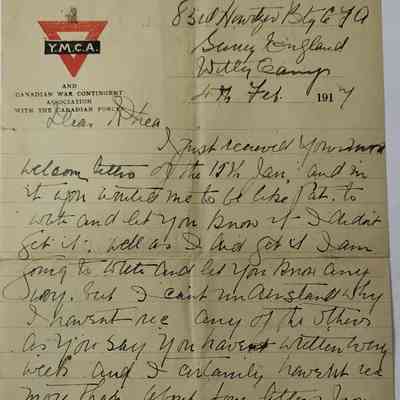 Y.M.C.A.
AND
CANADIAN WAR CONTINGENT
ASSOCIATION
WITH THE CANADIAN FORCES
83rd Howtzer Bty C F A
Surry England
Witly Camp
4th Feb. 1917
Dear Rhea
I just received your most
welcom letter of the 15th Jan, and in
it you wanted me to be like Pat. to
write and let you know if I didnt
get it. well as I did get it I am
going to write and let you know any
way. but I cant understand why
I havent rec any of the others
as you say you havent written every
week and I certainly havent rec
more than about four letters from